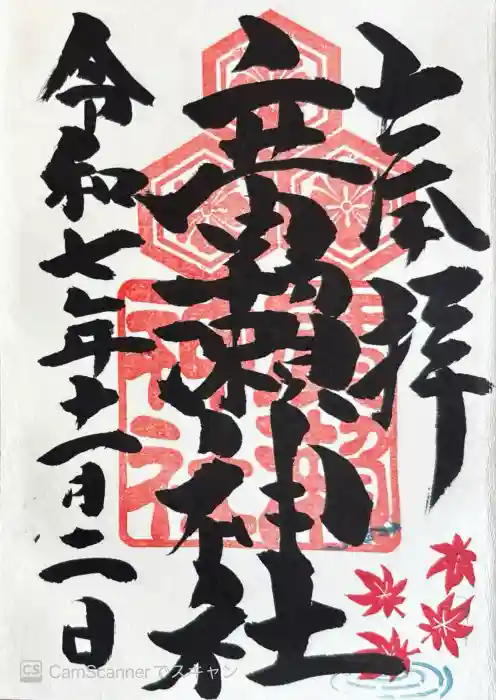 奉拝
神社
令和七年十一月二日
神社
CS CamScannerでスキャン